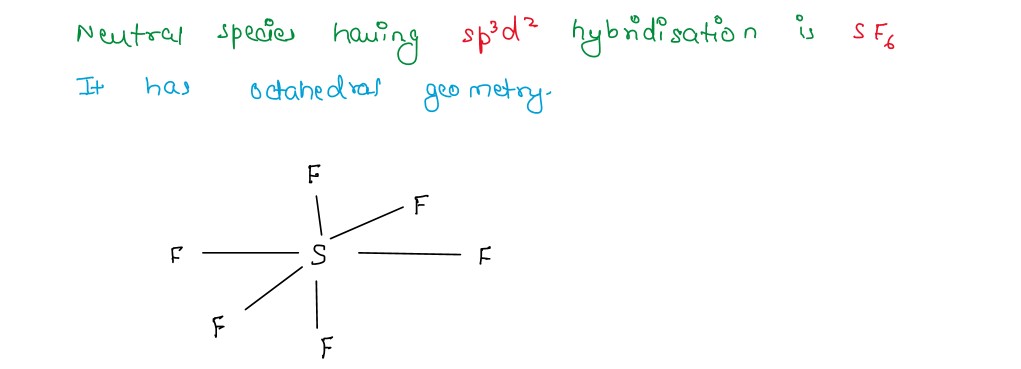 Neutral species having sp³d² hybridisation is SF₆
It has octahedral geometry.
F
F
F S F
F
F